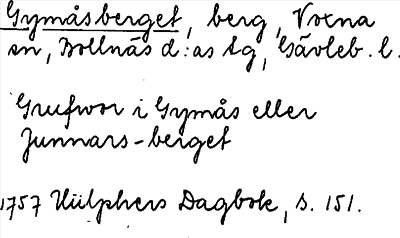 Gymåsberget, berg, Voxna
sn, Bollnäs d:as tg, Gävleb. l.
Grufwor i Gymås eller
Junnars-berget
1757 Hülphers Dagbok, s. 151.